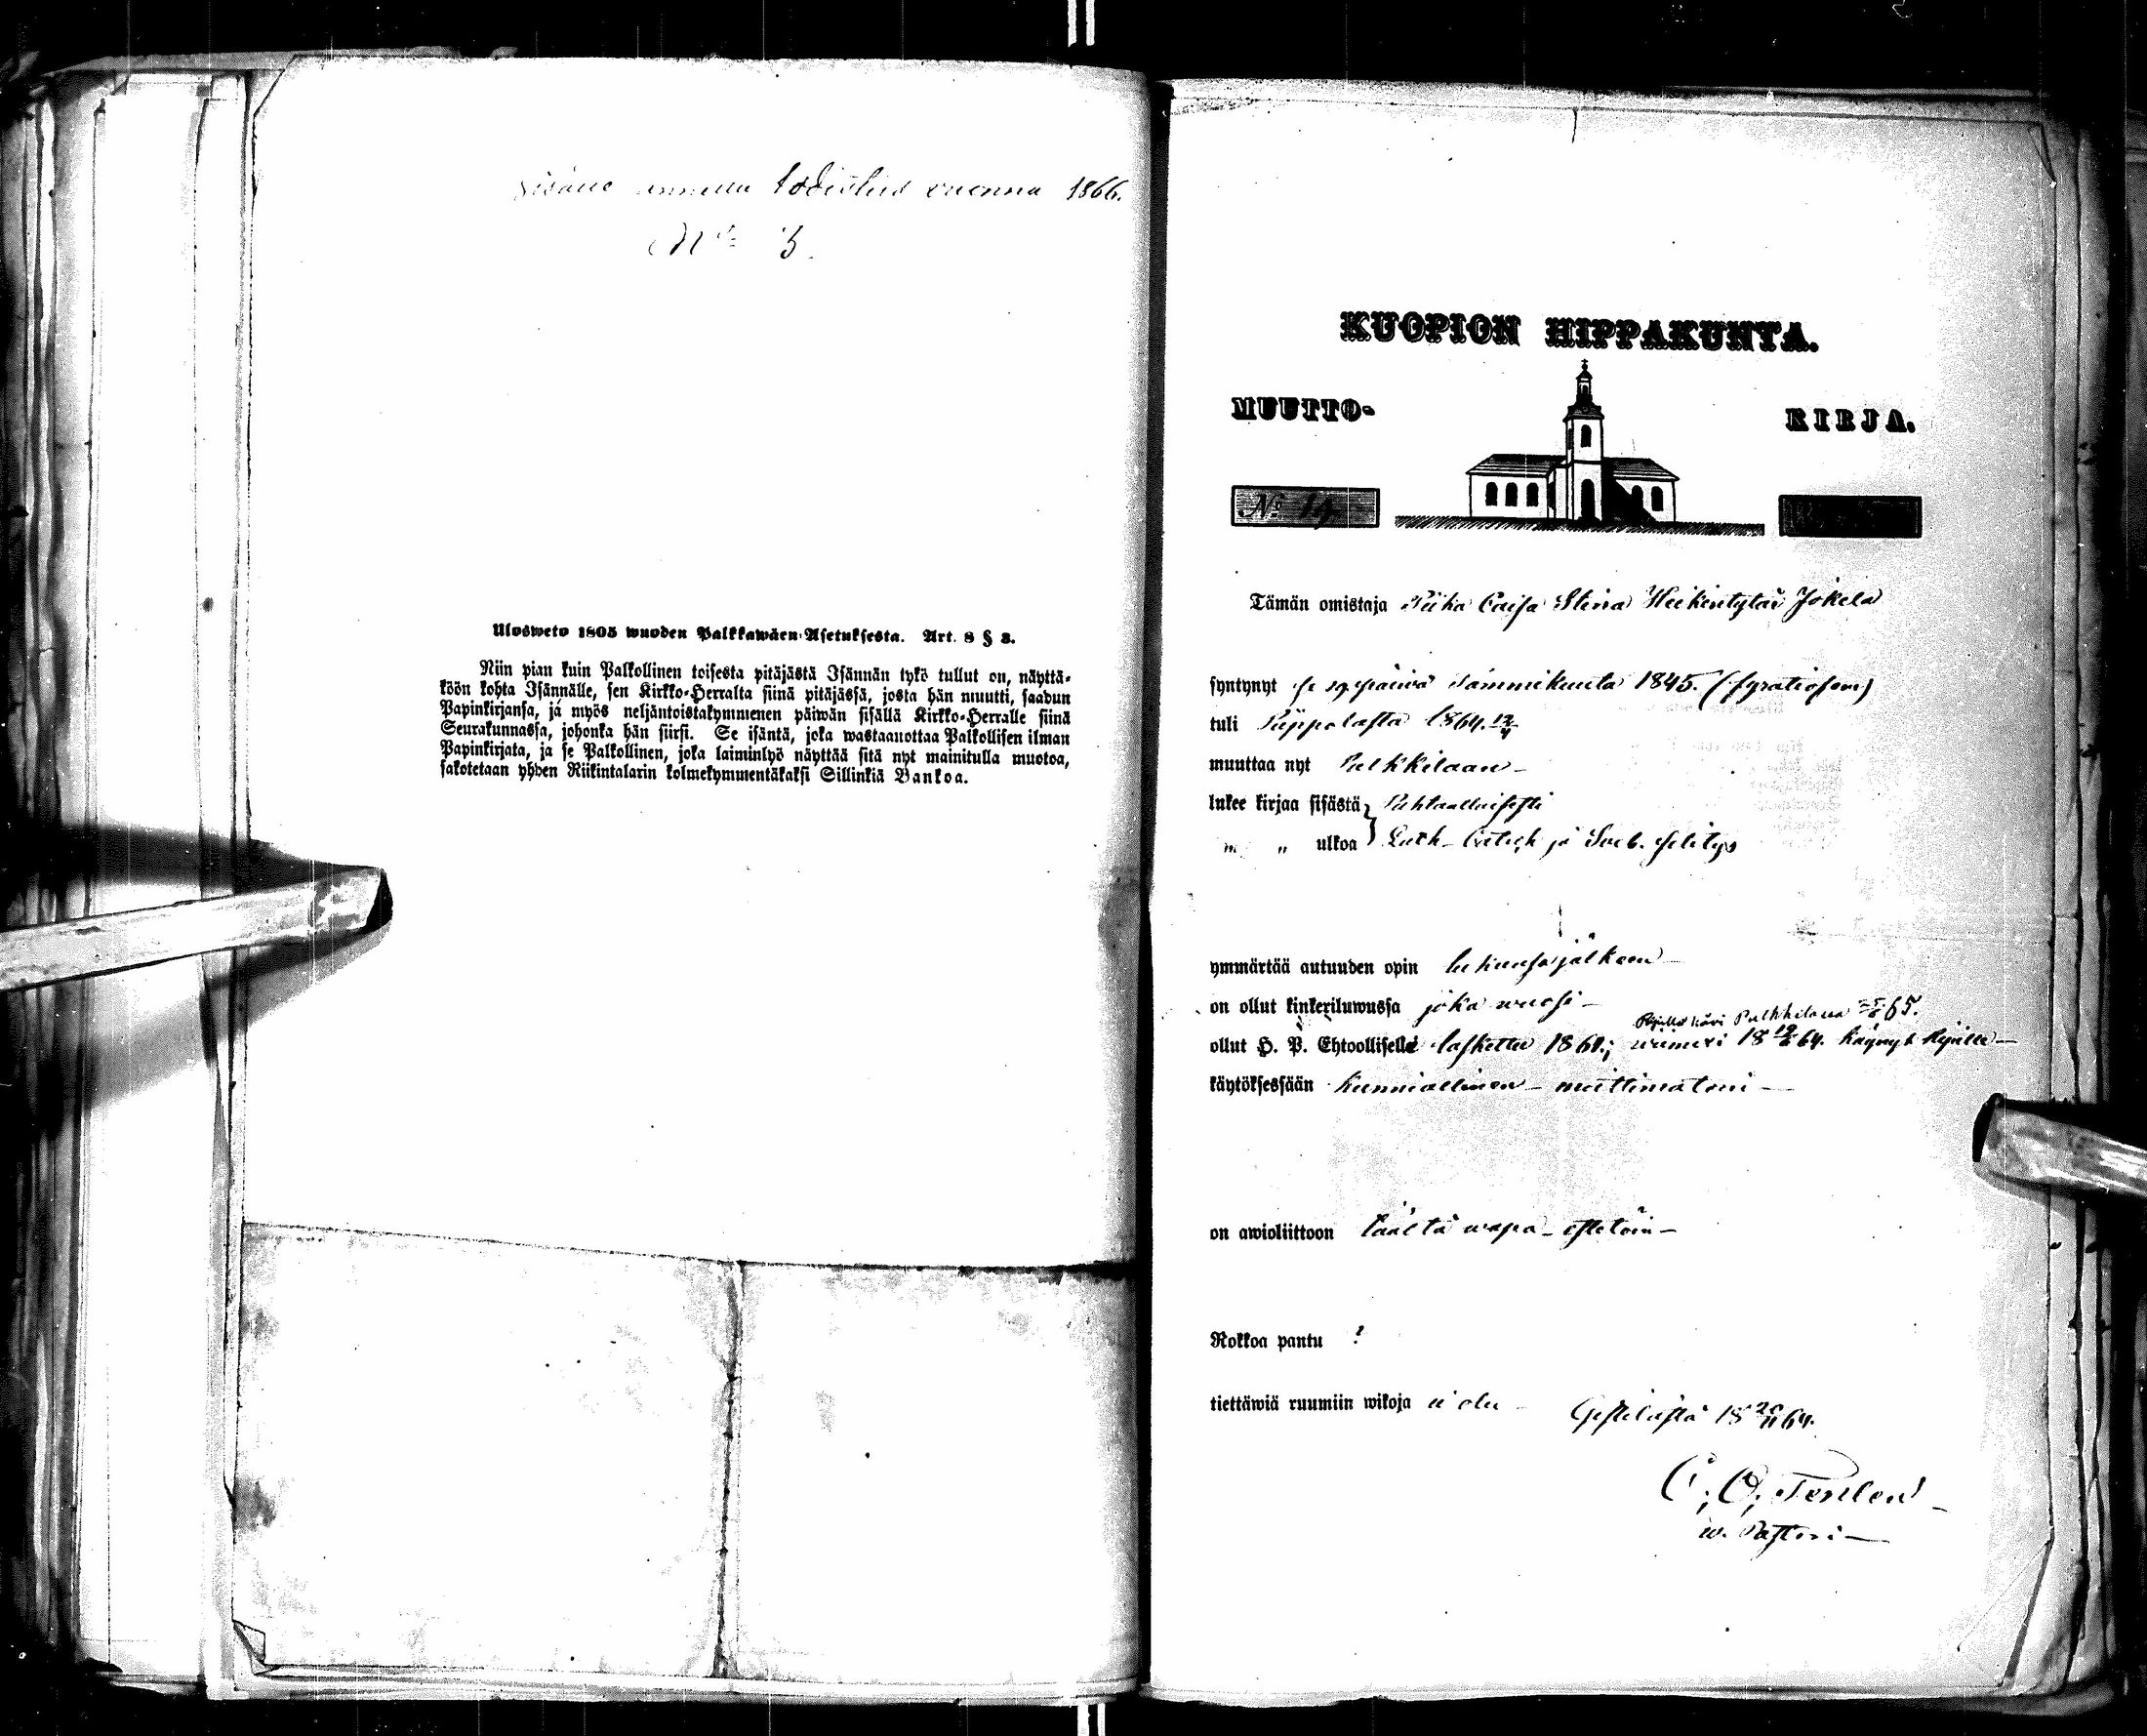 sisään annettu todistus vuonna 1866.
N:o 3.
Ulosweto 1805 wuoden Palkkawäen-Asetuksesta. Art. 8 § 3.
Niin pian kuin Palkollinen toisesta pitäjästä Isännän tykö tullut on, näyttä-
köön kohta Isännälle, sen Kirkko-Herralta siinä pitäjässä, josta hän muutti, saadun
Papinkirjansa, ja myös neljäntoistakymmenen päiwän sisällä Kirkko-Herralle siinä
Seurakunnassa, johonka hän siirsi. Se isäntä, joka wastaanottaa Palkollisen ilman
Papinkirjata, ja se Palkollinen, joka laiminlyö näyttää sitä nyt mainitulla muotoa,
sakotetaan yhden Riikintalarin kolmekymmentäkaksi Sillinkiä Bankoa.
KUOPION HIPPAKUNTA.
MUUTTO- KIRJA.
No 14
Tämän omistaja Piika Caisa Stina Heikintytär Jokela
syntynyt päiwä Tammikuuta 1845.
tuli Piippolasta 1864.
muuttaa nyt Pulkkilaan
lukee kirjaa sisästä Puhtaallaisesti
" " ulkoa Luth. Catech ja Sveb. selitys
ymmärtää autuuden opin lukunsa jälkeen
on ollut kinkeriluwussa joka wuosi
Ripillä käwi Pulkkilassa 65.
ollut H. P. Ehtoollisella laskettu 1861; wiimexi 18 64. käynyt Ripillä
käytöksessään kunniallinen moittimatoin
on awioliittoon täältä wapa esteetöin
Rokkoa pantu ?
tiettäwiä ruumiin wikoja ei ole
Gestilästä 18 20/11 64.
C. O. Tenlen
w. Pastori